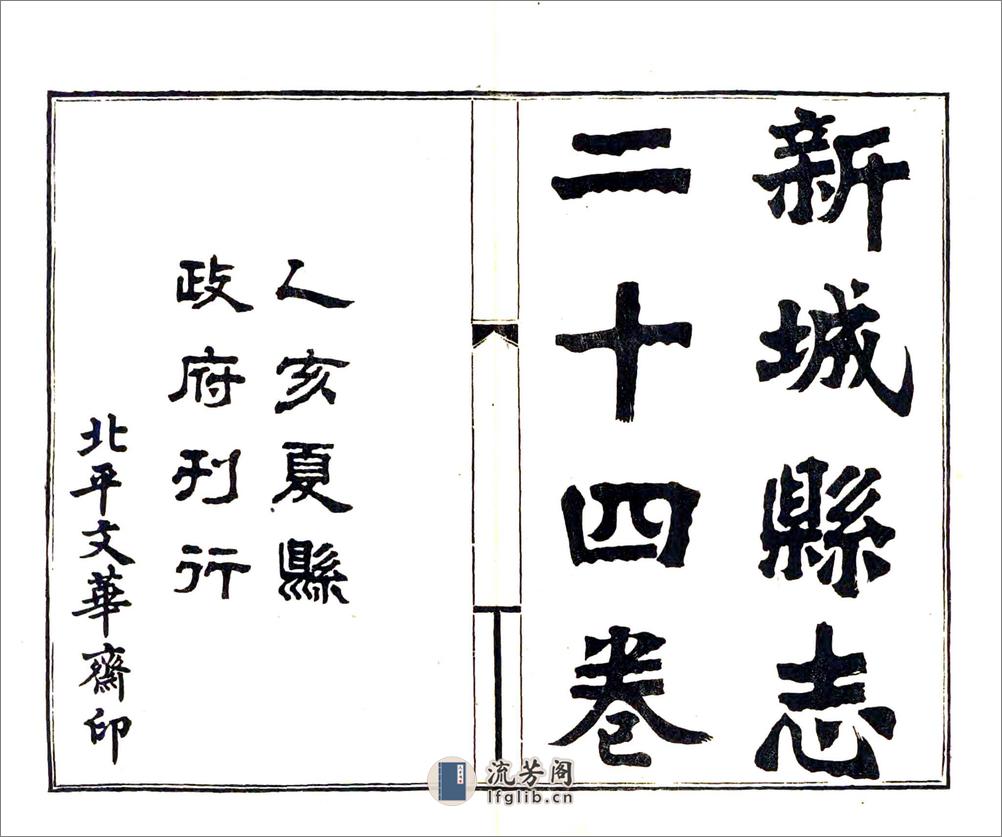 新城縣志
二十四卷
乙亥夏縣
政府刊行
北平文華齋印
流芳阁
lfglib.cn